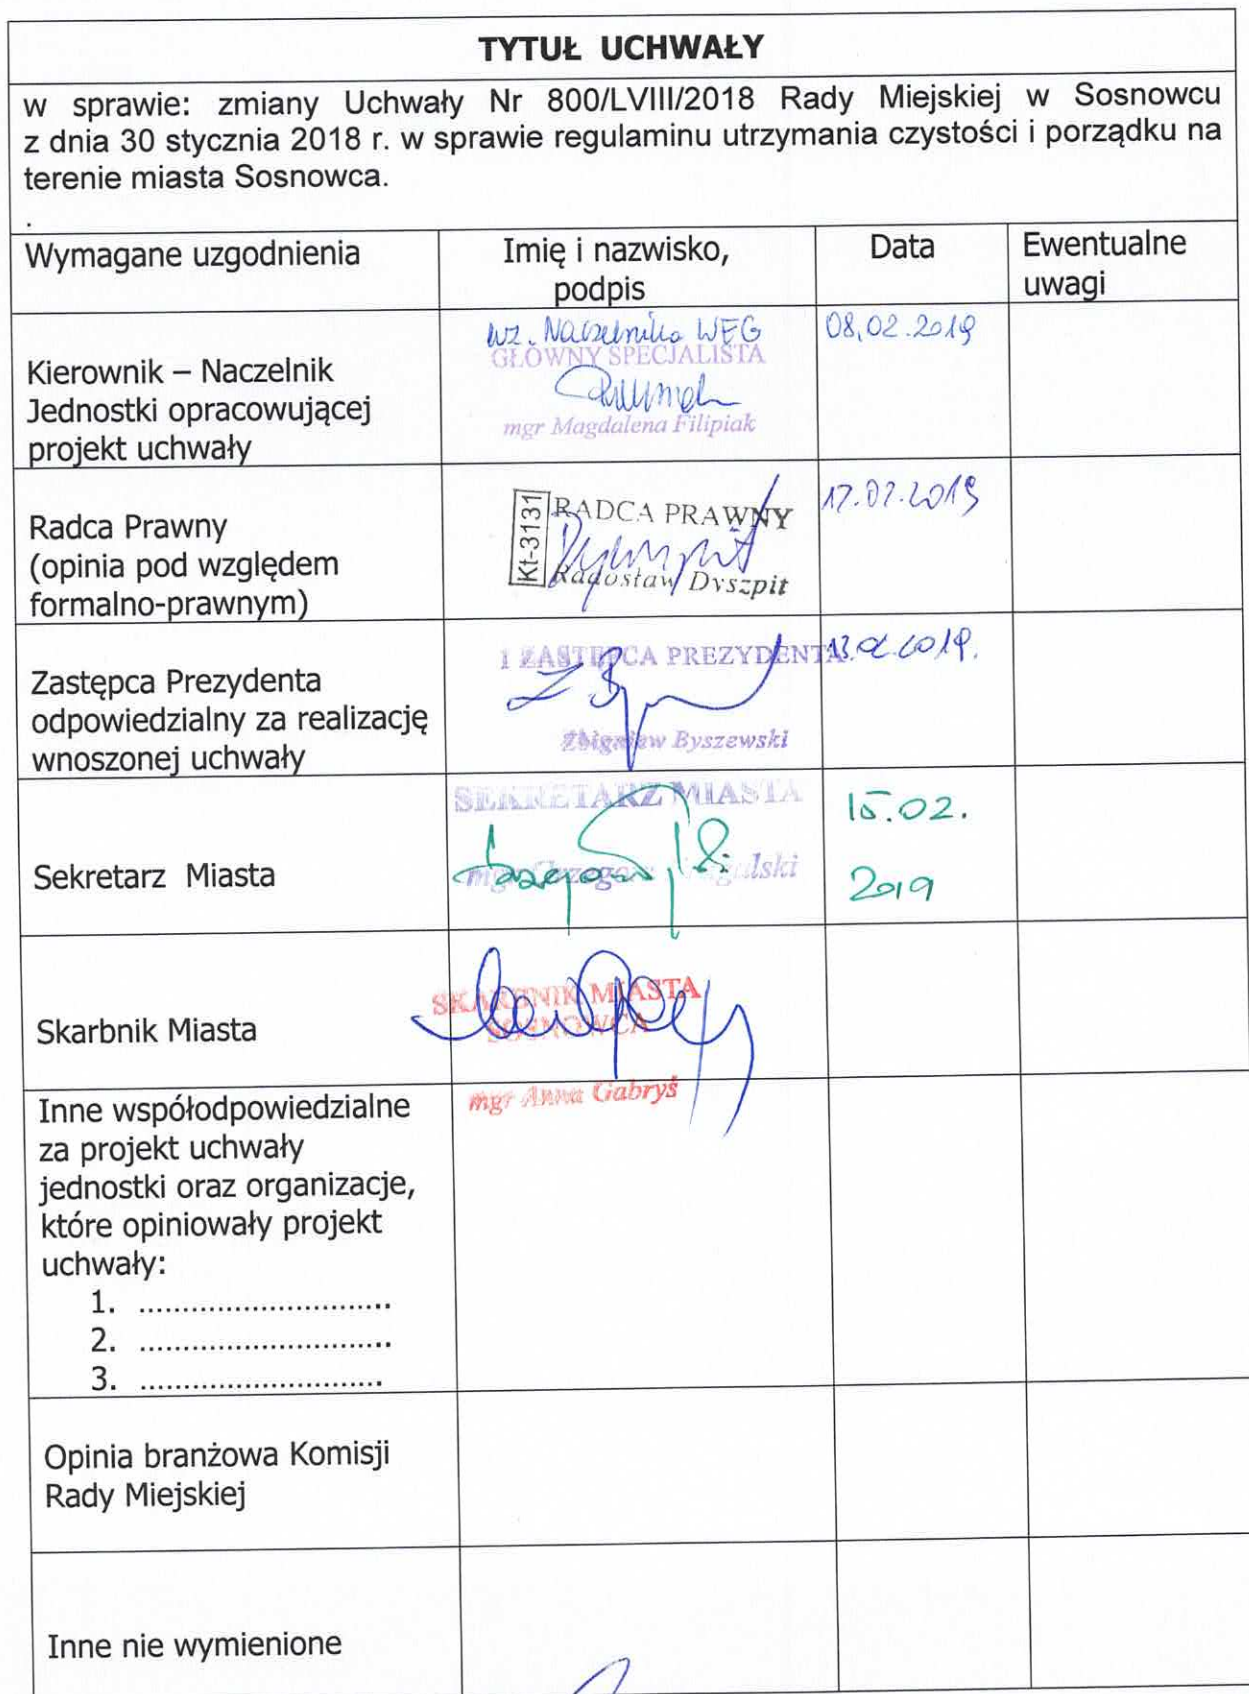 TYTUŁ UCHWAŁY
w sprawie: zmiany Uchwały Nr 800/LVIII/2018 Rady Miejskiej w Sosnowcu
z dnia 30 stycznia 2018 r. w sprawie regulaminu utrzymania czystości i porządku na
terenie miasta Sosnowca.
.
Wymagane uzgodnienia
Imię i nazwisko,
podpis
Data
Ewentualne
uwagi
Kierownik – Naczelnik
Jednostki opracowującej
projekt uchwały
wz. Naczelnika WEG
GŁÓWNY SPECJALISTA
mgr Magdalena Filipiak
08.02.2019
Radca Prawny
(opinia pod względem
formalno-prawnym)
Kt-3131
RADCA PRAWNY
Radosław Dyszpit
Zastępca Prezydenta
odpowiedzialny za realizację
wnoszonej uchwały
I ZASTĘPCA PREZYDENTA
Zbigniew Byszewski
Sekretarz Miasta
SEKRETARZ MIASTA
mgr
15.02.
2019
Skarbnik Miasta
SKARBNIK MIASTA
SOSNOWCA
mgr Anna Gabryś
Inne współodpowiedzialne
za projekt uchwały
jednostki oraz organizacje,
które opiniowały projekt
uchwały:
1. ..............................
2. ..............................
3. ..............................
Opinia branżowa Komisji
Rady Miejskiej
Inne nie wymienione